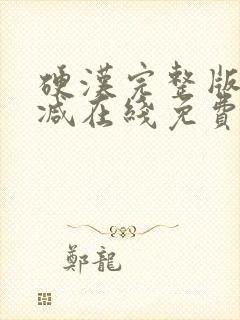 硬漢完整版
減在綫免費
鄭龍